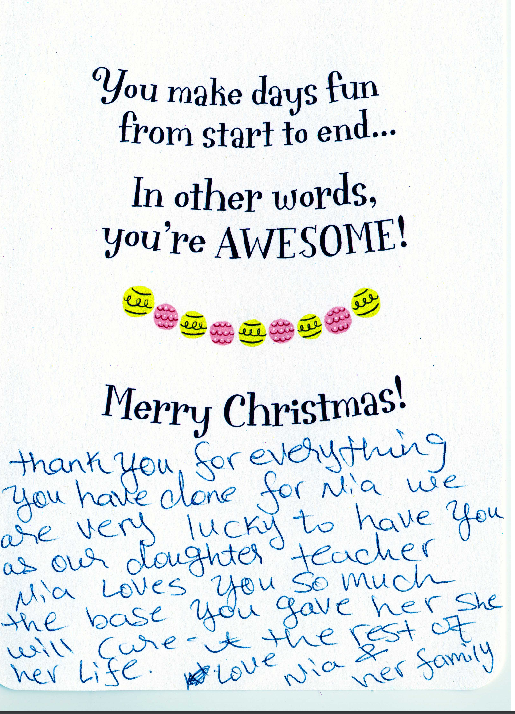 You make days fun
from start to end...
In other words,
you're AWESOME!
Merry Christmas!
thank you, for everything
you have done for Mia we
are very lucky to have you
as our doughter teacher
Mia Loves you so much
the base you gave her she
will cure-it the rest of
her Life. Love Mia &
her family